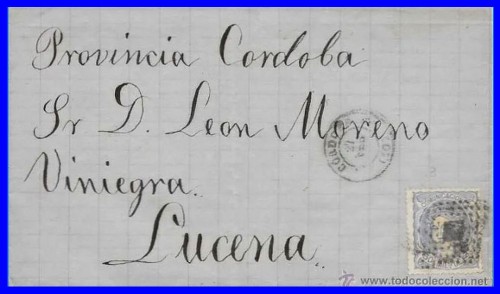 Provincia Cordoba
Sr D. Leon Moreno
Viniegra.
Lucena.
www.todocoleccion.net